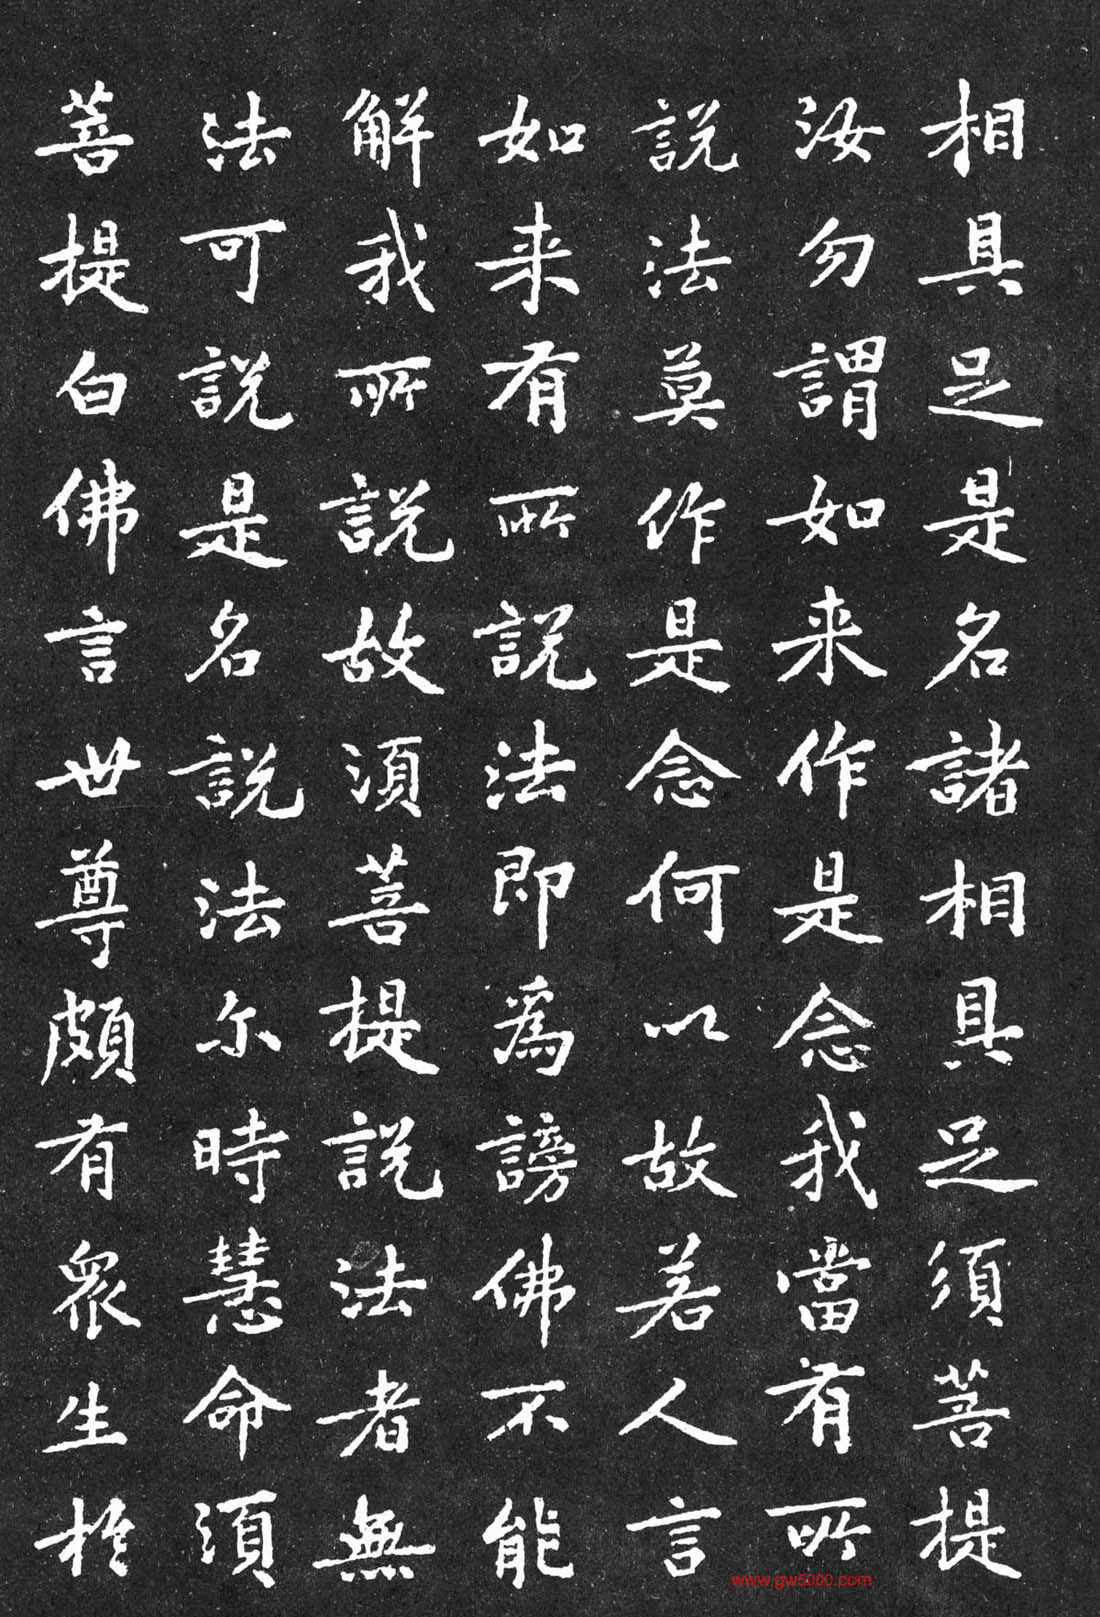 相具足是名諸相具足須菩提
汝勿謂如来作是念我當有所
說法莫作是念何以故若人言
如来有所說法即為謗佛不能
解我所說故須菩提說法者無
法可說是名說法尔時慧命須
菩提白佛言世尊頗有衆生於
www.gw5000.com